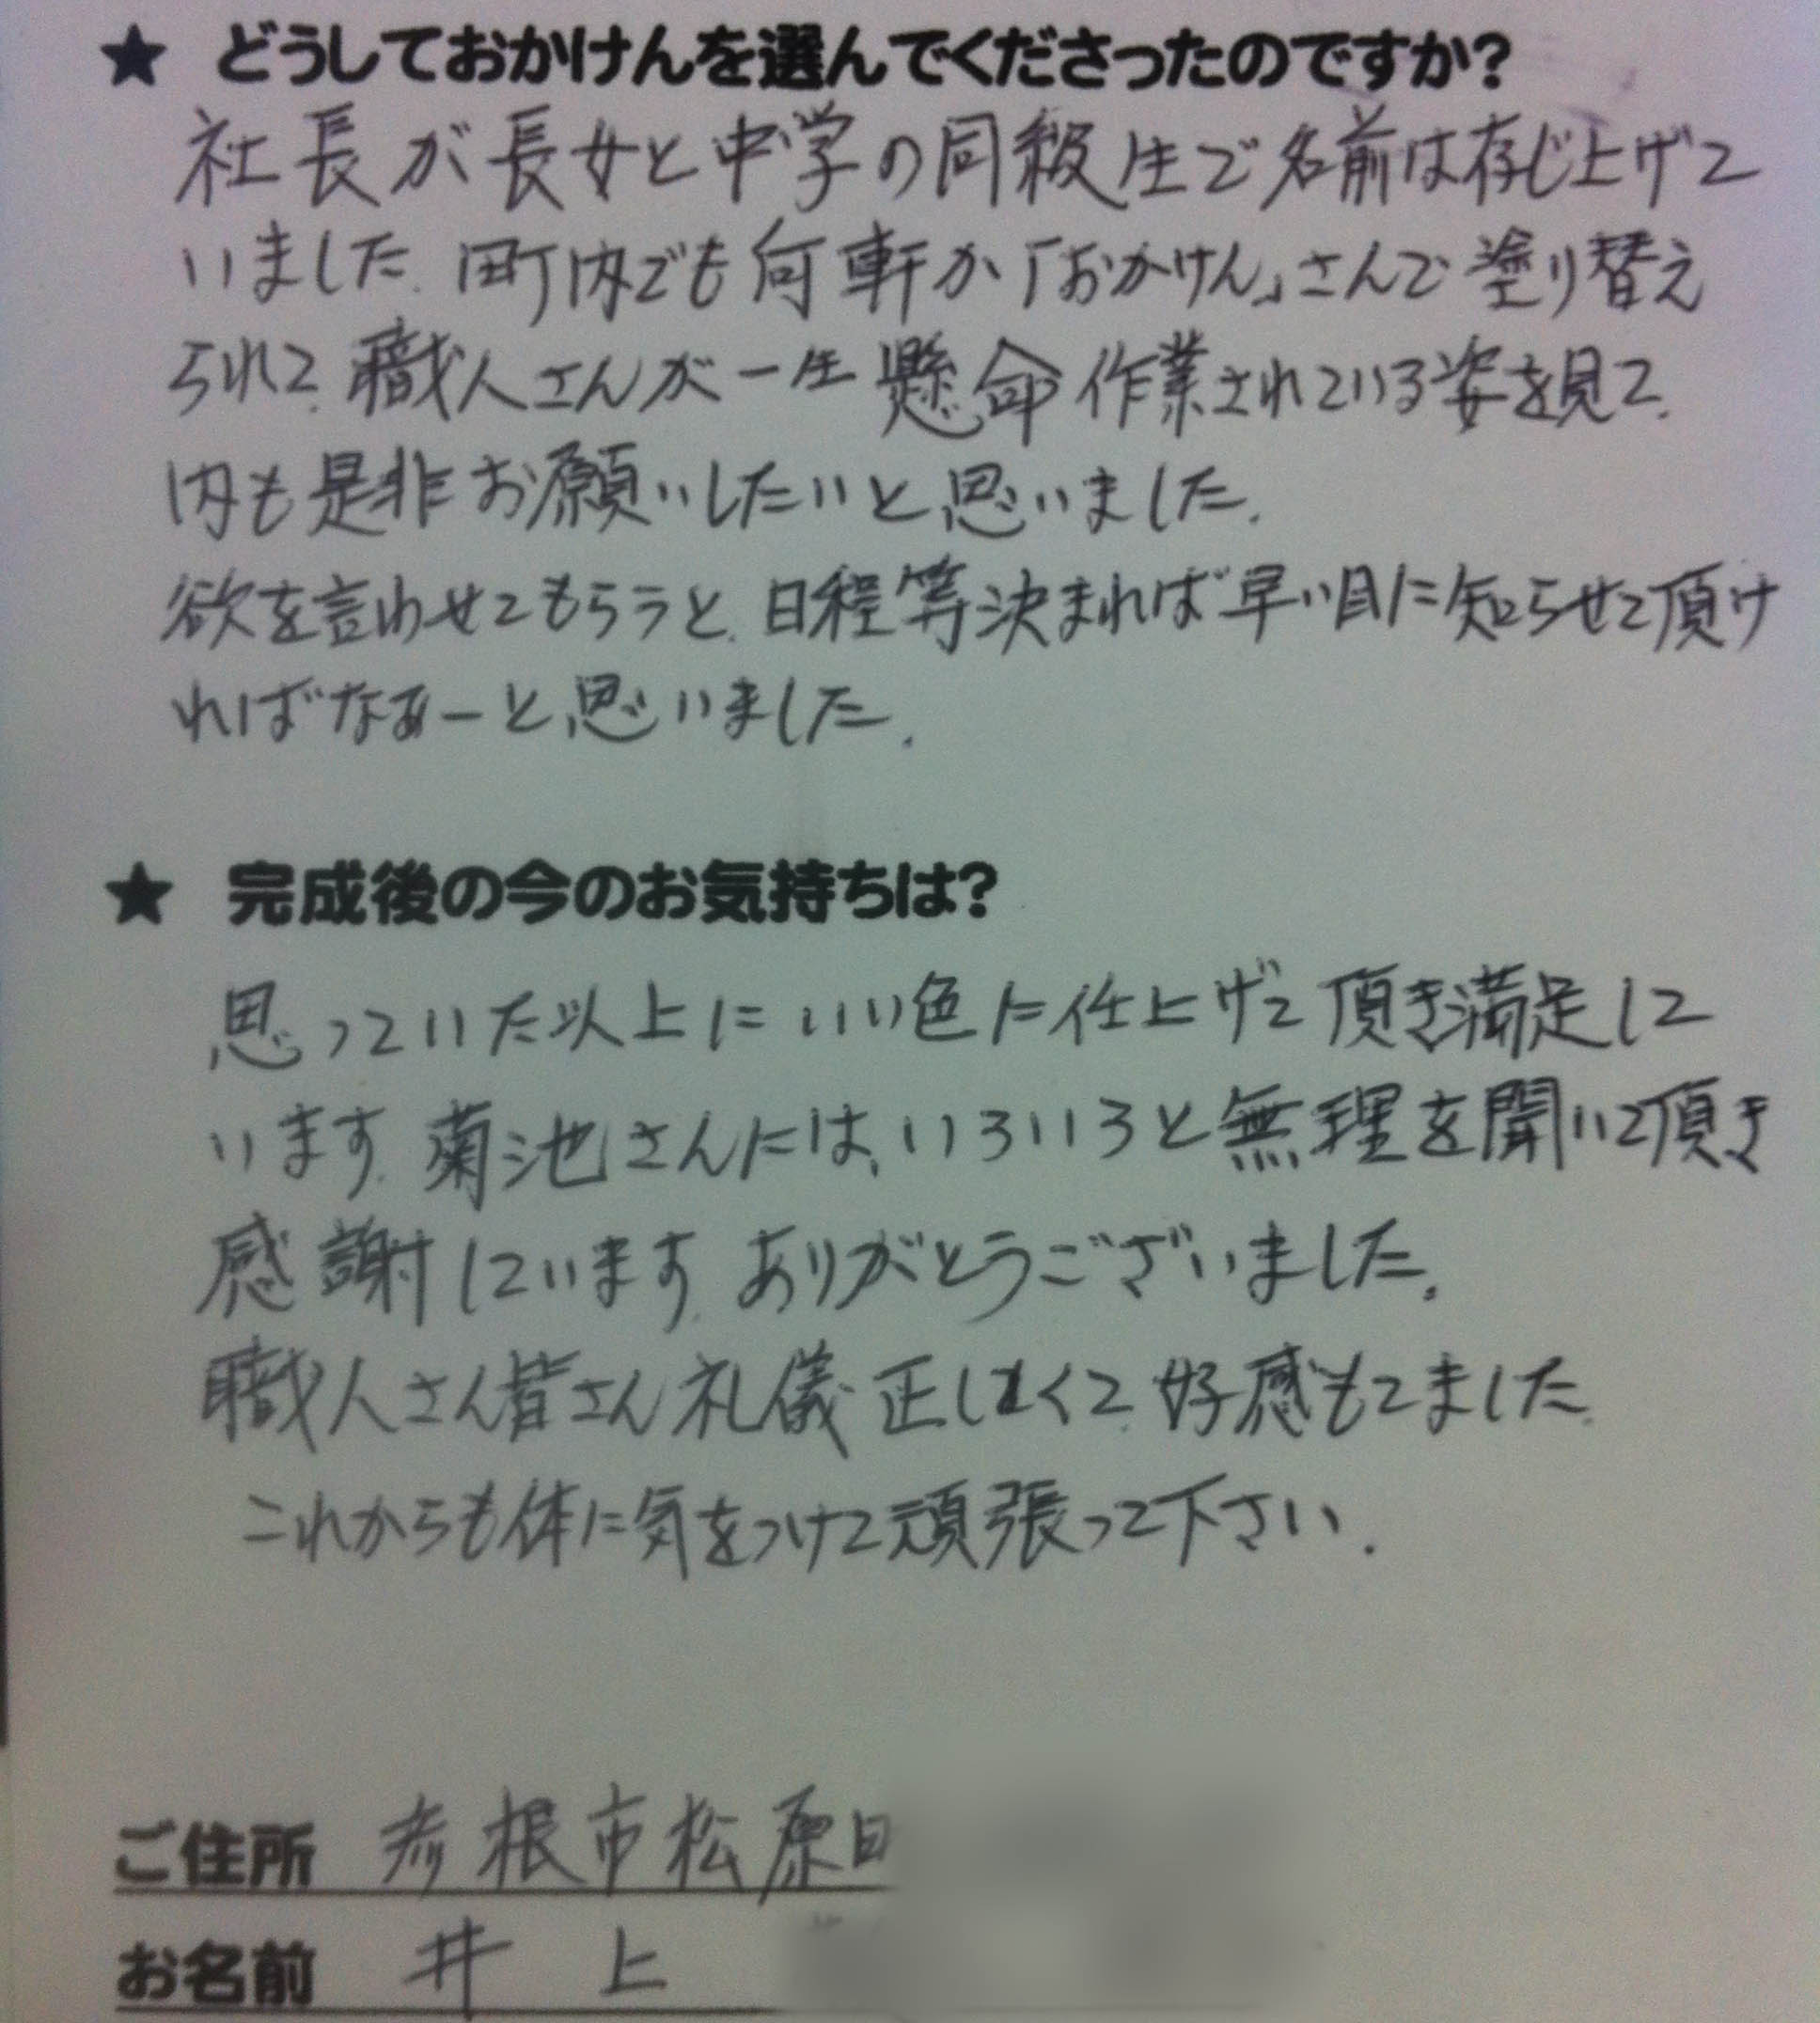 ★ どうしておかけんを選んでくださったのですか?
社長が長女と中学の同級生で名前は存じ上げて
いました.町内でも何軒か「おかけん」さんで塗り替え
られて.職人さんが一生懸命作業されている姿を見て.
内も是非お願いしたいと思いました.
欲を言わせてもらうと.日程等決まれば早い目に知らせて頂け
ればなぁーと思いました.
★ 完成後の今のお気持ちは?
思っていた以上にいい色に仕上げて頂き満足して
います.菊池さんには、いろいろと無理を聞いて頂き
感謝しています.ありがとうございました.
職人さん皆さん礼儀正しくて.好感もてました.
これからも体に気をつけて頑張って下さい.
ご住所 彦根市松原
お名前 井上